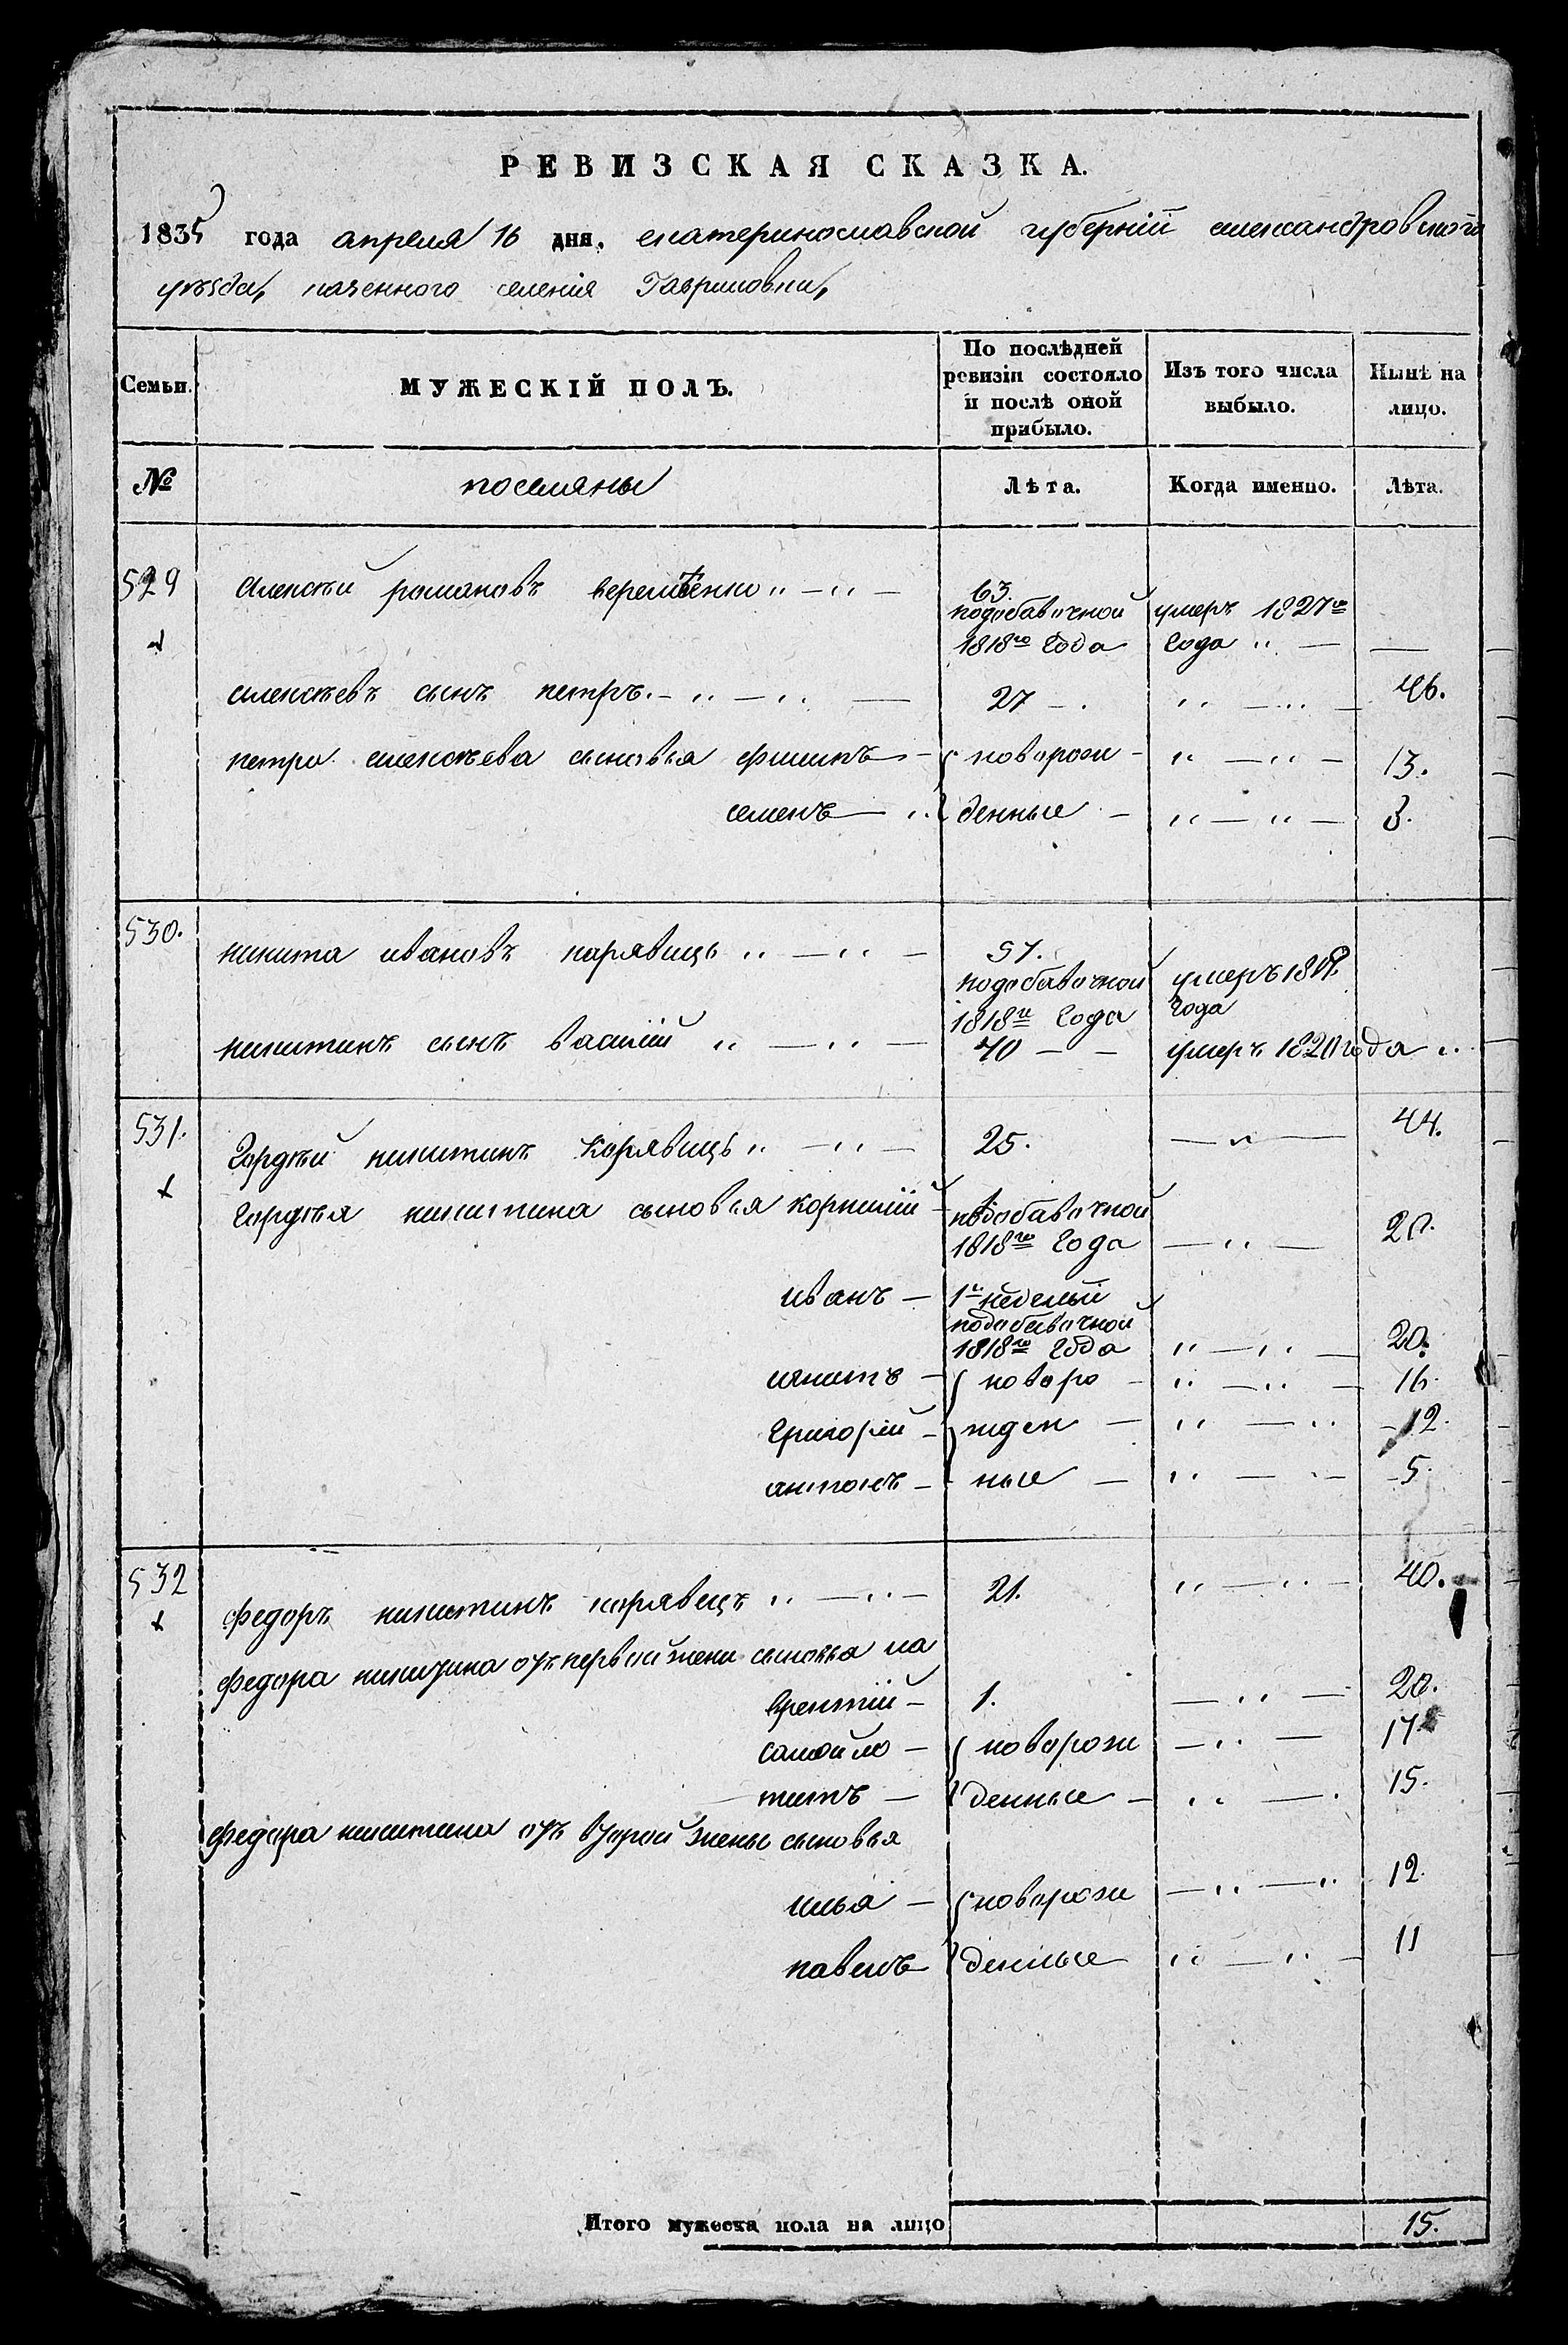 РЕВИЗСКАЯ СКАЗКА.
1835 года апреля 16 дня, екатеринославской губерніи александровского
уѣзда, казенного селенія Гавриловки,
Семьи. МУЖЕСКІЙ ПОЛЪ. По послѣдней ревизіи состояло и послѣ оной прибыло. Изъ того числа выбыло. Нынѣ на лицо.
№ поселяны Лѣта. Когда именно. Лѣта.
529 Алексѣй романовъ веремѣенко 63.
подобавочной умеръ 1827го
1818го года года
алексѣевъ сынъ петръ 27 46.
петра алексѣева сыновья филипъ новорож 13.
семенъ денные 3.
530. никита ивановъ карявецъ 57.
подобавочной умеръ
1818го года года
никитинъ сынъ василій 40 умеръ 1820 года
531. Гордѣй никитинъ Карявецъ 25. 44.
гордѣя никитина сыновья корнилій подобавочной
1818го года
иванъ 1й недельи
подобавочной
1818го года 20.
игнатъ новоро 16.
григорій жден 12.
антонъ ные 5.
532 федоръ никитинъ карявецъ 21. 40.
федора никитина отъ первой жены сыновья ла
врентій 1. 20.
самойло новорож 17
титъ денные 15.
федора никитина отъ второй жены сыновья
илья новорож 12.
павелъ денные 11
Итого мужеска пола на лицо 15.